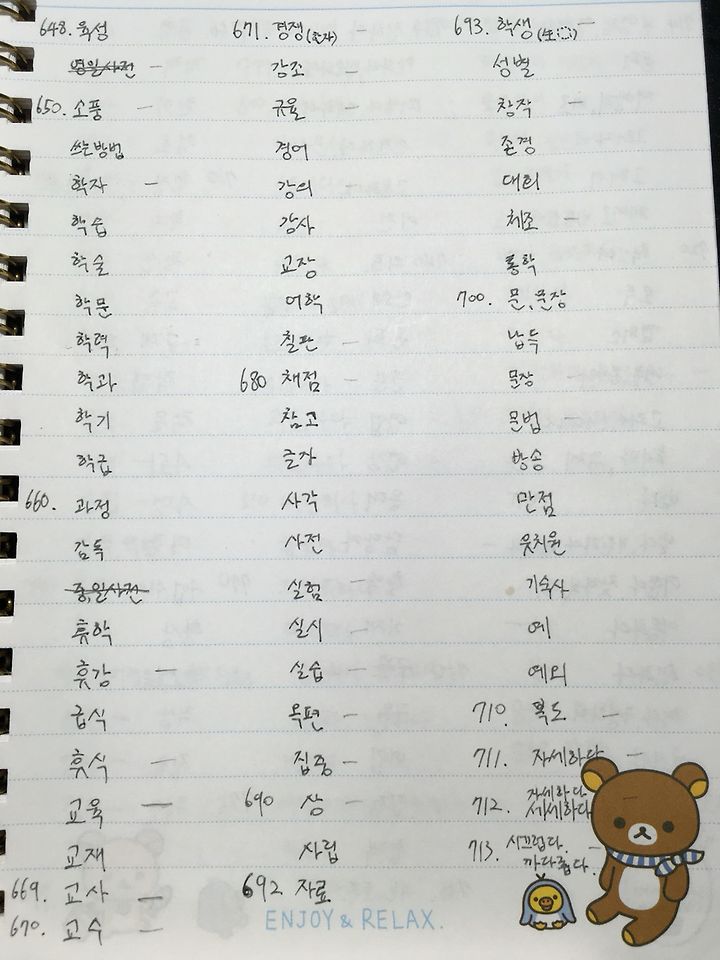 648. 육성
영일사전 —
650. 소풍 —
쓰는방법
학자 —
학습
학술
학문
학력
학과
학기
학급
660. 과정
감독
중일사전
휴학
휴강 —
급식
휴식 —
교육 —
교재
669. 교사 —
670. 교수 —
671. 경쟁(혼자) —
감조 —
규율 —
경어
강의 —
감사
교장
어학
칠판 —
680 채점 —
참고
글자
사각
사전
실험 —
실시 —
실습 —
옥편 —
집중 —
690 상 —
사립
692 자료
693. 학생 —
성별
창작 —
존경
대회
체조 —
통학
700. 문, 문장
납득
문장 —
문법 —
방송
만점
유치원
기숙사
예
예외
710. 복도 —
711. 자세하다 —
712. 자세하다 —
세세하다
713. 시끄럽다. —
까다롭다.
ENJOY & RELAX.